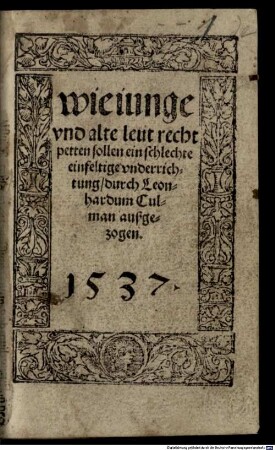 wie iunge
vnd alte leut recht
petten sollen ein schlechte
einfeltige vnderrich-
tung/durch Leon-
hardum Cul-
man ausge-
zogen.
1537.